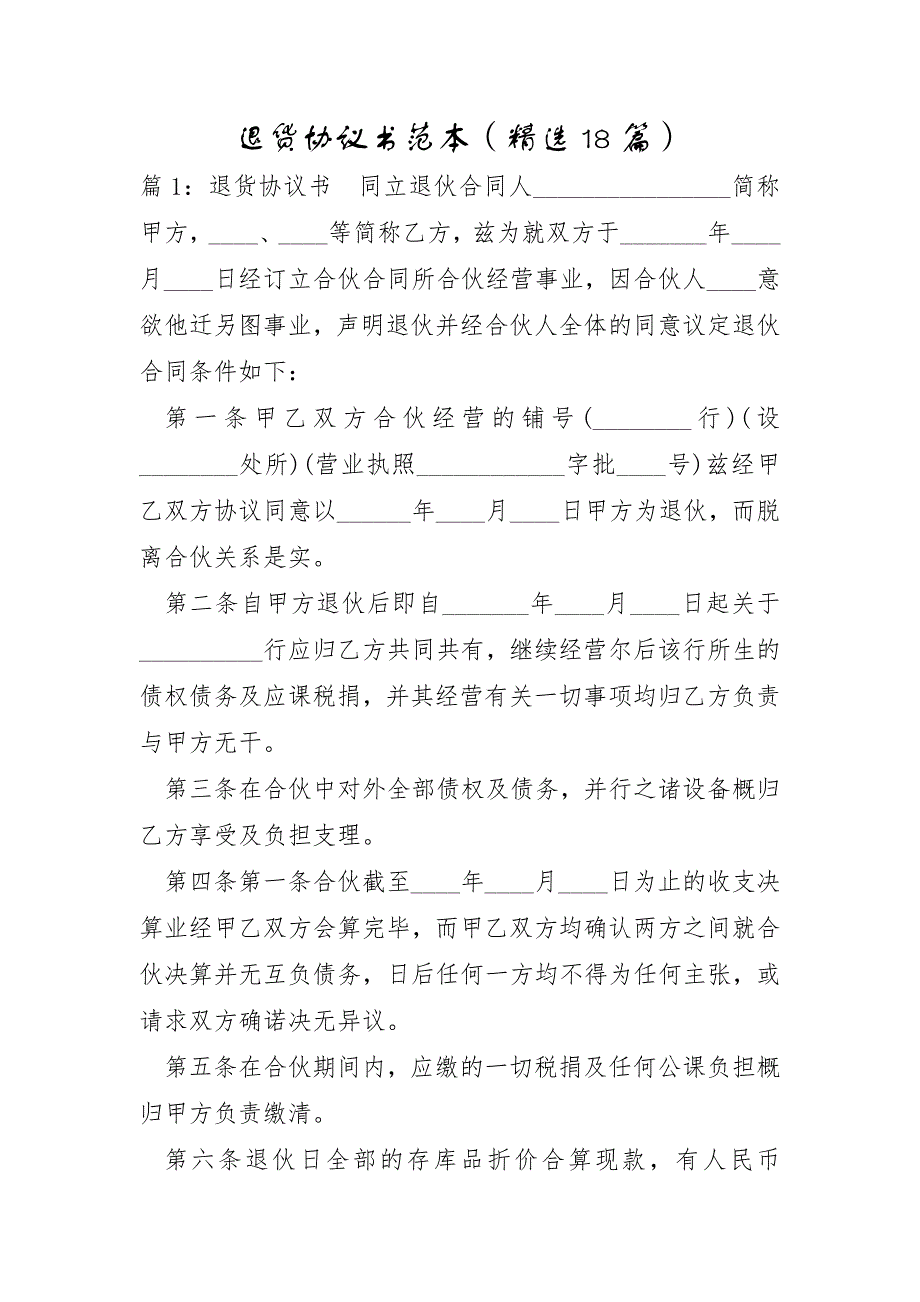 退货协议书范本（精选18篇）
篇1：退货协议书　同立退伙合同人________________简称
甲方，____、____等简称乙方，兹为就双方于_______年____
月____日经订立合伙合同所合伙经营事业，因合伙人____意
欲他迁另图事业，声明退伙并经合伙人全体的同意议定退伙
合同条件如下：
第一条甲乙双方合伙经营的铺号(________行)(设
________处所)(营业执照____________字批____号)兹经甲
乙双方协议同意以______年____月____日甲方为退伙，而脱
离合伙关系是实。
第二条自甲方退伙后即自_______年____月____日起关于
__________行应归乙方共同共有，继续经营尔后该行所生的
债权债务及应课税捐，并其经营有关一切事项均归乙方负责
与甲方无干。
第三条在合伙中对外全部债权及债务，并行之诸设备概归
乙方享受及负担支理。
第四条第一条合伙截至____年____月____日为止的收支决
算业经甲乙双方会算完毕，而甲乙双方均确认两方之间就合
伙决算并无互负债务，日后任何一方均不得为任何主张，或
请求双方确诺决无异议。
第五条在合伙期间内，应缴的一切税捐及任何公课负担概
归甲方负责缴清。
第六条退伙日全部的存库品折价合算现款，有人民币